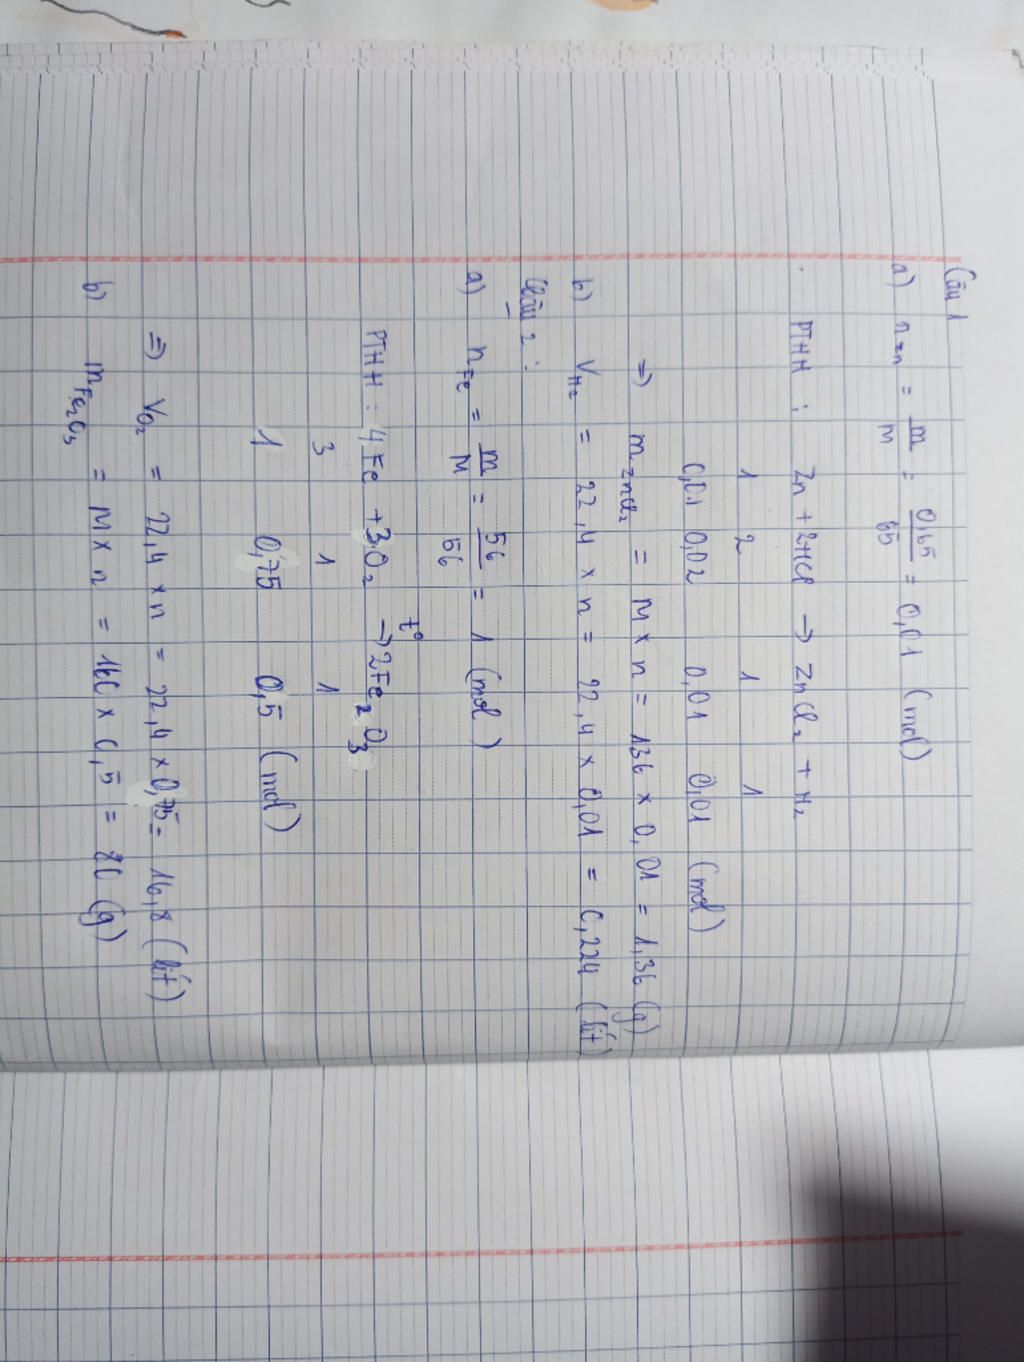 Câu 1
a) nZn = m/M = 0,65/65 = 0,01 (mol)
PTHH : Zn + 2HCl → ZnCl₂ + H₂
1 2 1 1
0,01 0,02 0,01 0,01 (mol)
=> mZnCl₂ = M × n = 136 × 0,01 = 1,36 (g)
b) VH₂ = 22,4 × n = 22,4 × 0,01 = 0,224 (lít)
Câu 2 :
a) nFe = m/M = 56/56 = 1 (mol)
PTHH : 4Fe + 3O₂ t°→ 2Fe₂O₃
3 1 1
1 0,75 0,5 (mol)
=> VO₂ = 22,4 × n = 22,4 × 0,75 = 16,8 (lít)
b) mFe₂O₃ = M × n = 160 × 0,5 = 80 (g)